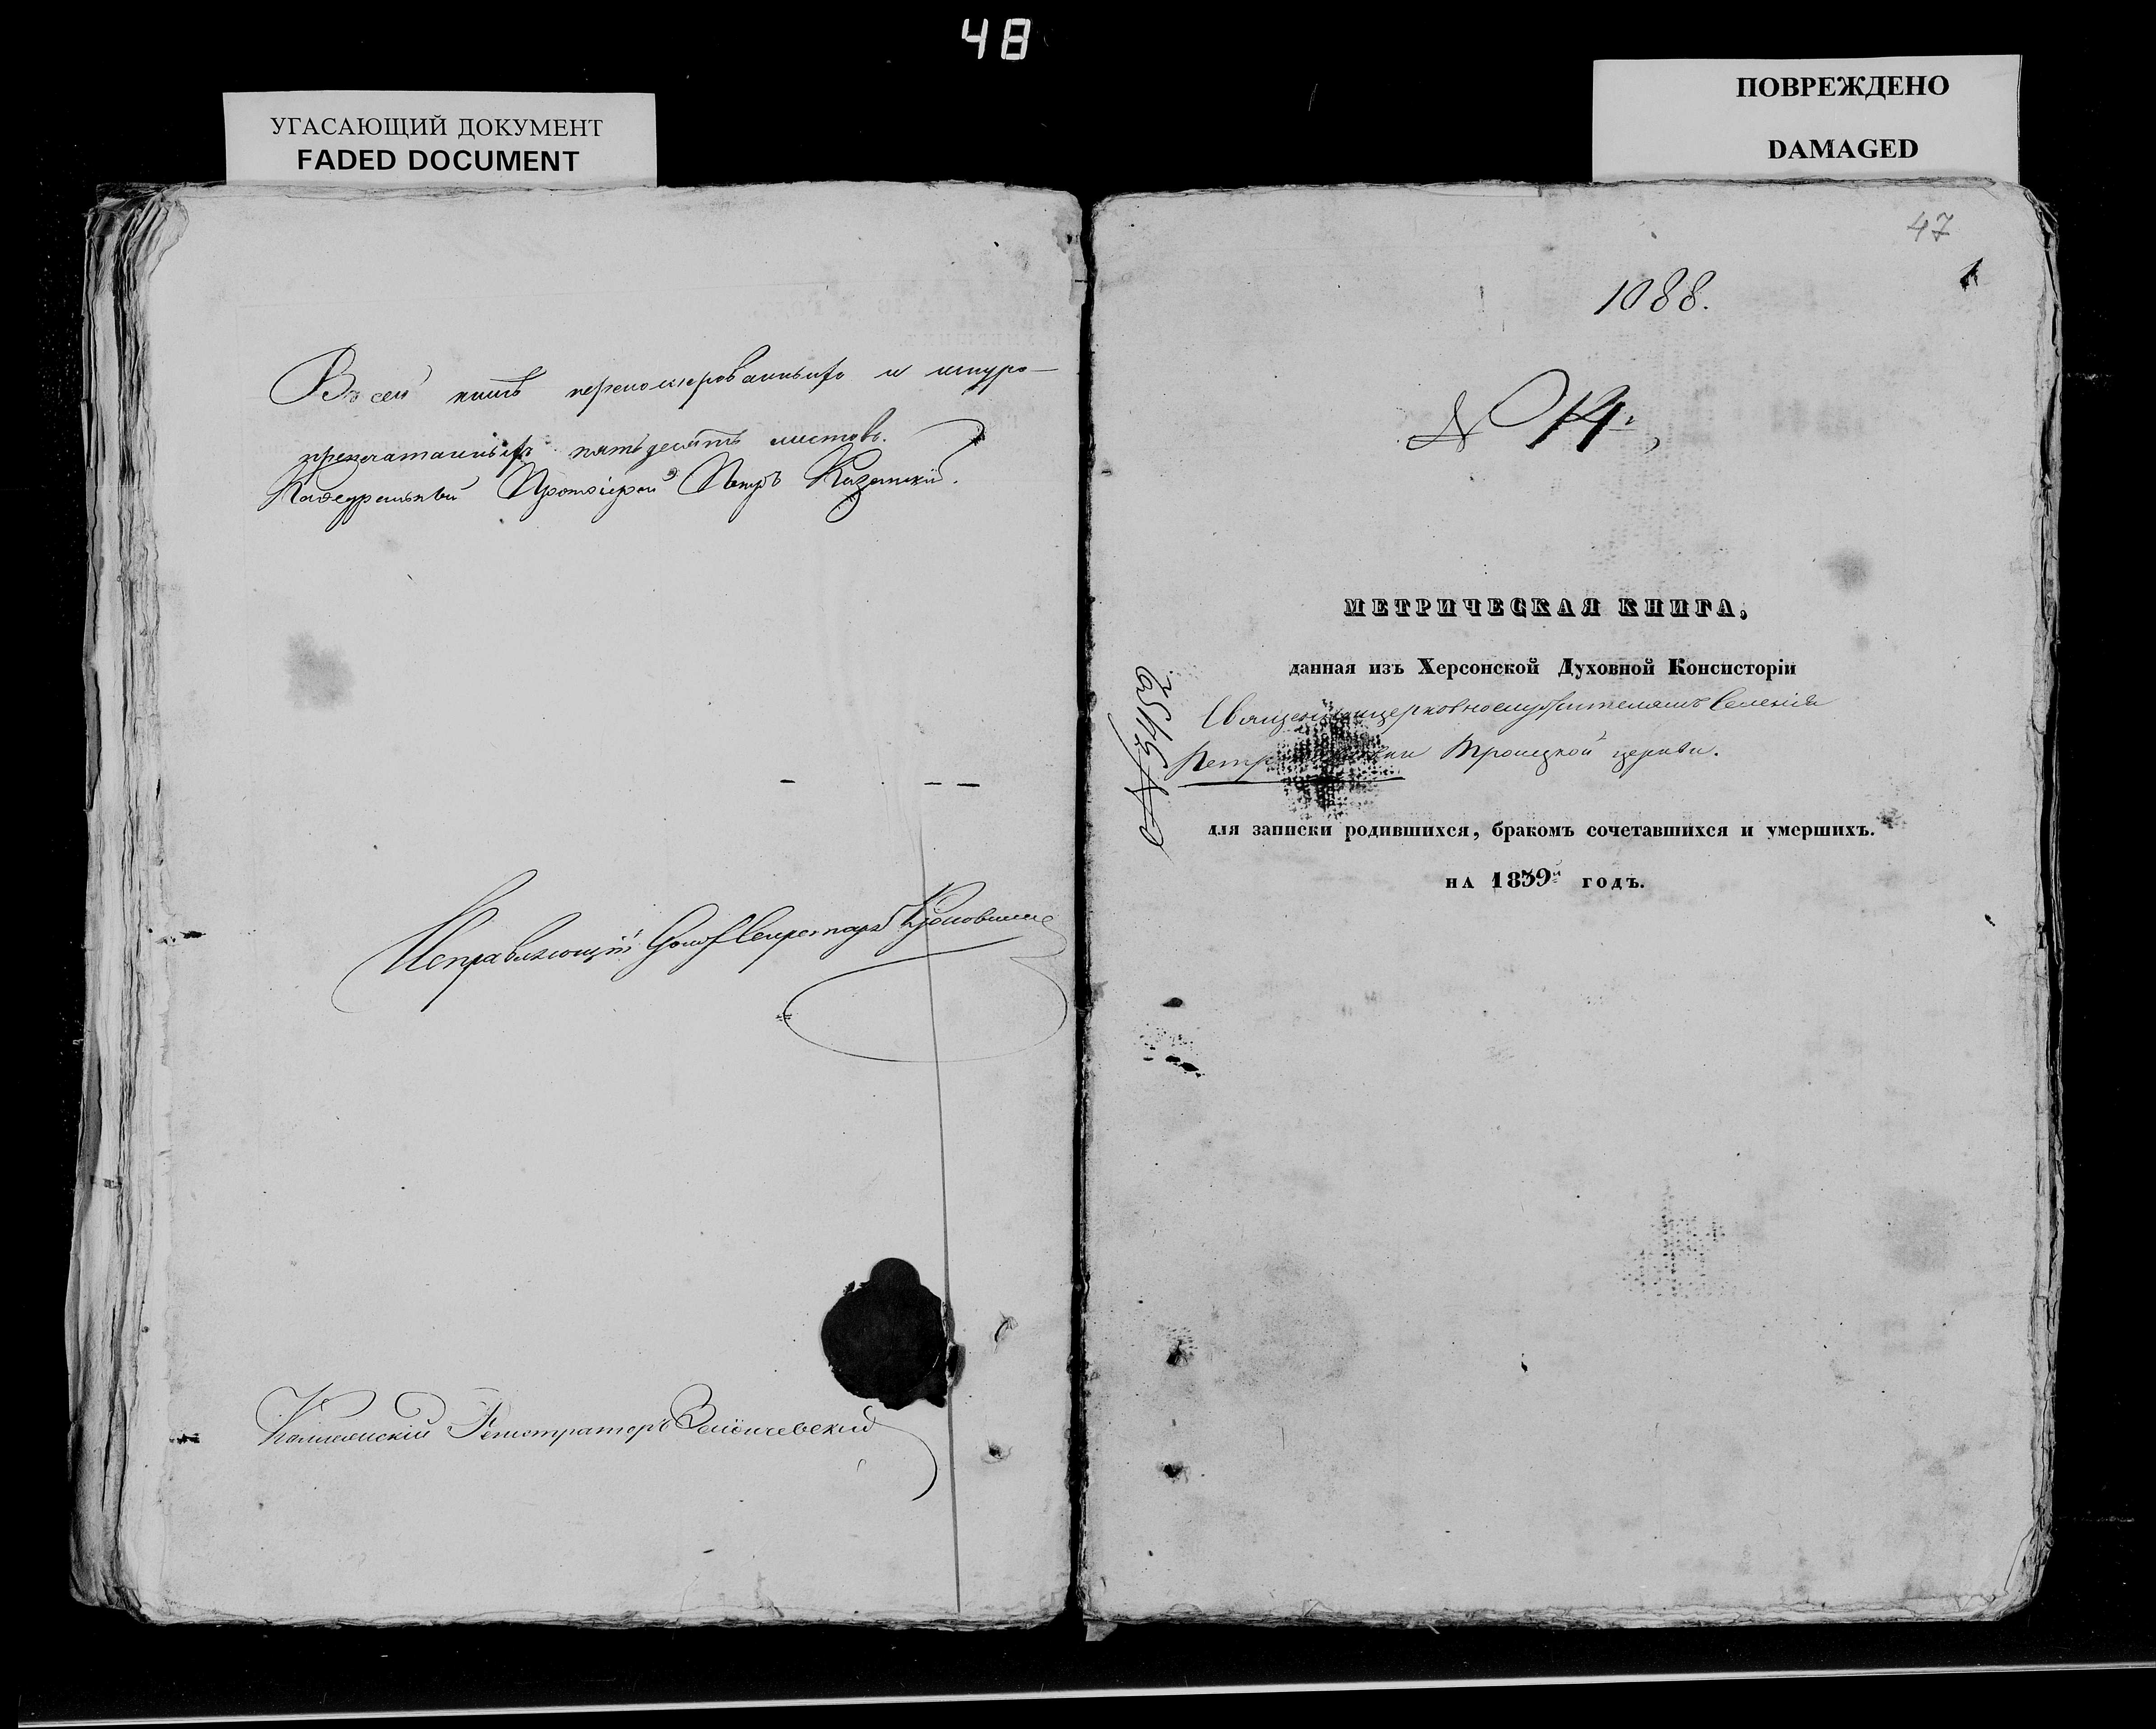 48
УГАСАЮЩИЙ ДОКУМЕНТ
FADED DOCUMENT
ПОВРЕЖДЕНО
DAMAGED
Въ сей книгѣ перенумерованныхъ и шнуро-
пропечатанныхъ пятьдесятъ листовъ.
Кафедральный Протоіерей Петръ
Исправляющій Секретаря
Регистраторъ
47
1
1088.
№ 14
МЕТРИЧЕСКАЯ КНИГА,
данная изъ Херсонской Духовной Консисторіи
Священноцерковнослужителямъ Селенія
Троицкой церкви.
№ 5459
для записки родившихся, бракомъ сочетавшихся и умершихъ.
НА 1839й ГОДЪ.